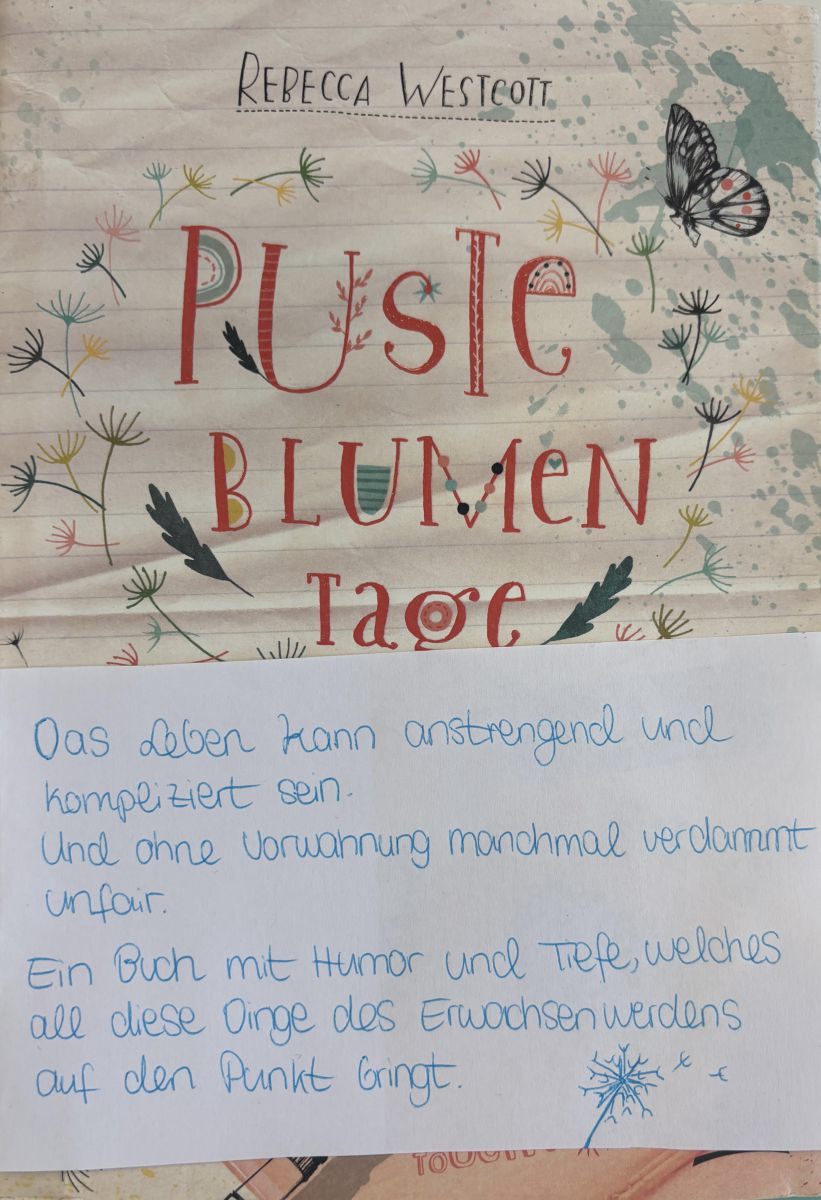 REBECCA WESTCOTT
PUSTE
BLUMEN
TAGE
Das Leben kann anstrengend und
kompliziert sein.
Und ohne Vorwahnung manchmal verdammt
unfair.
Ein Buch mit Humor und Tiefe, welches
all diese Dinge des Erwachsenwerdens
auf den Punkt bringt.